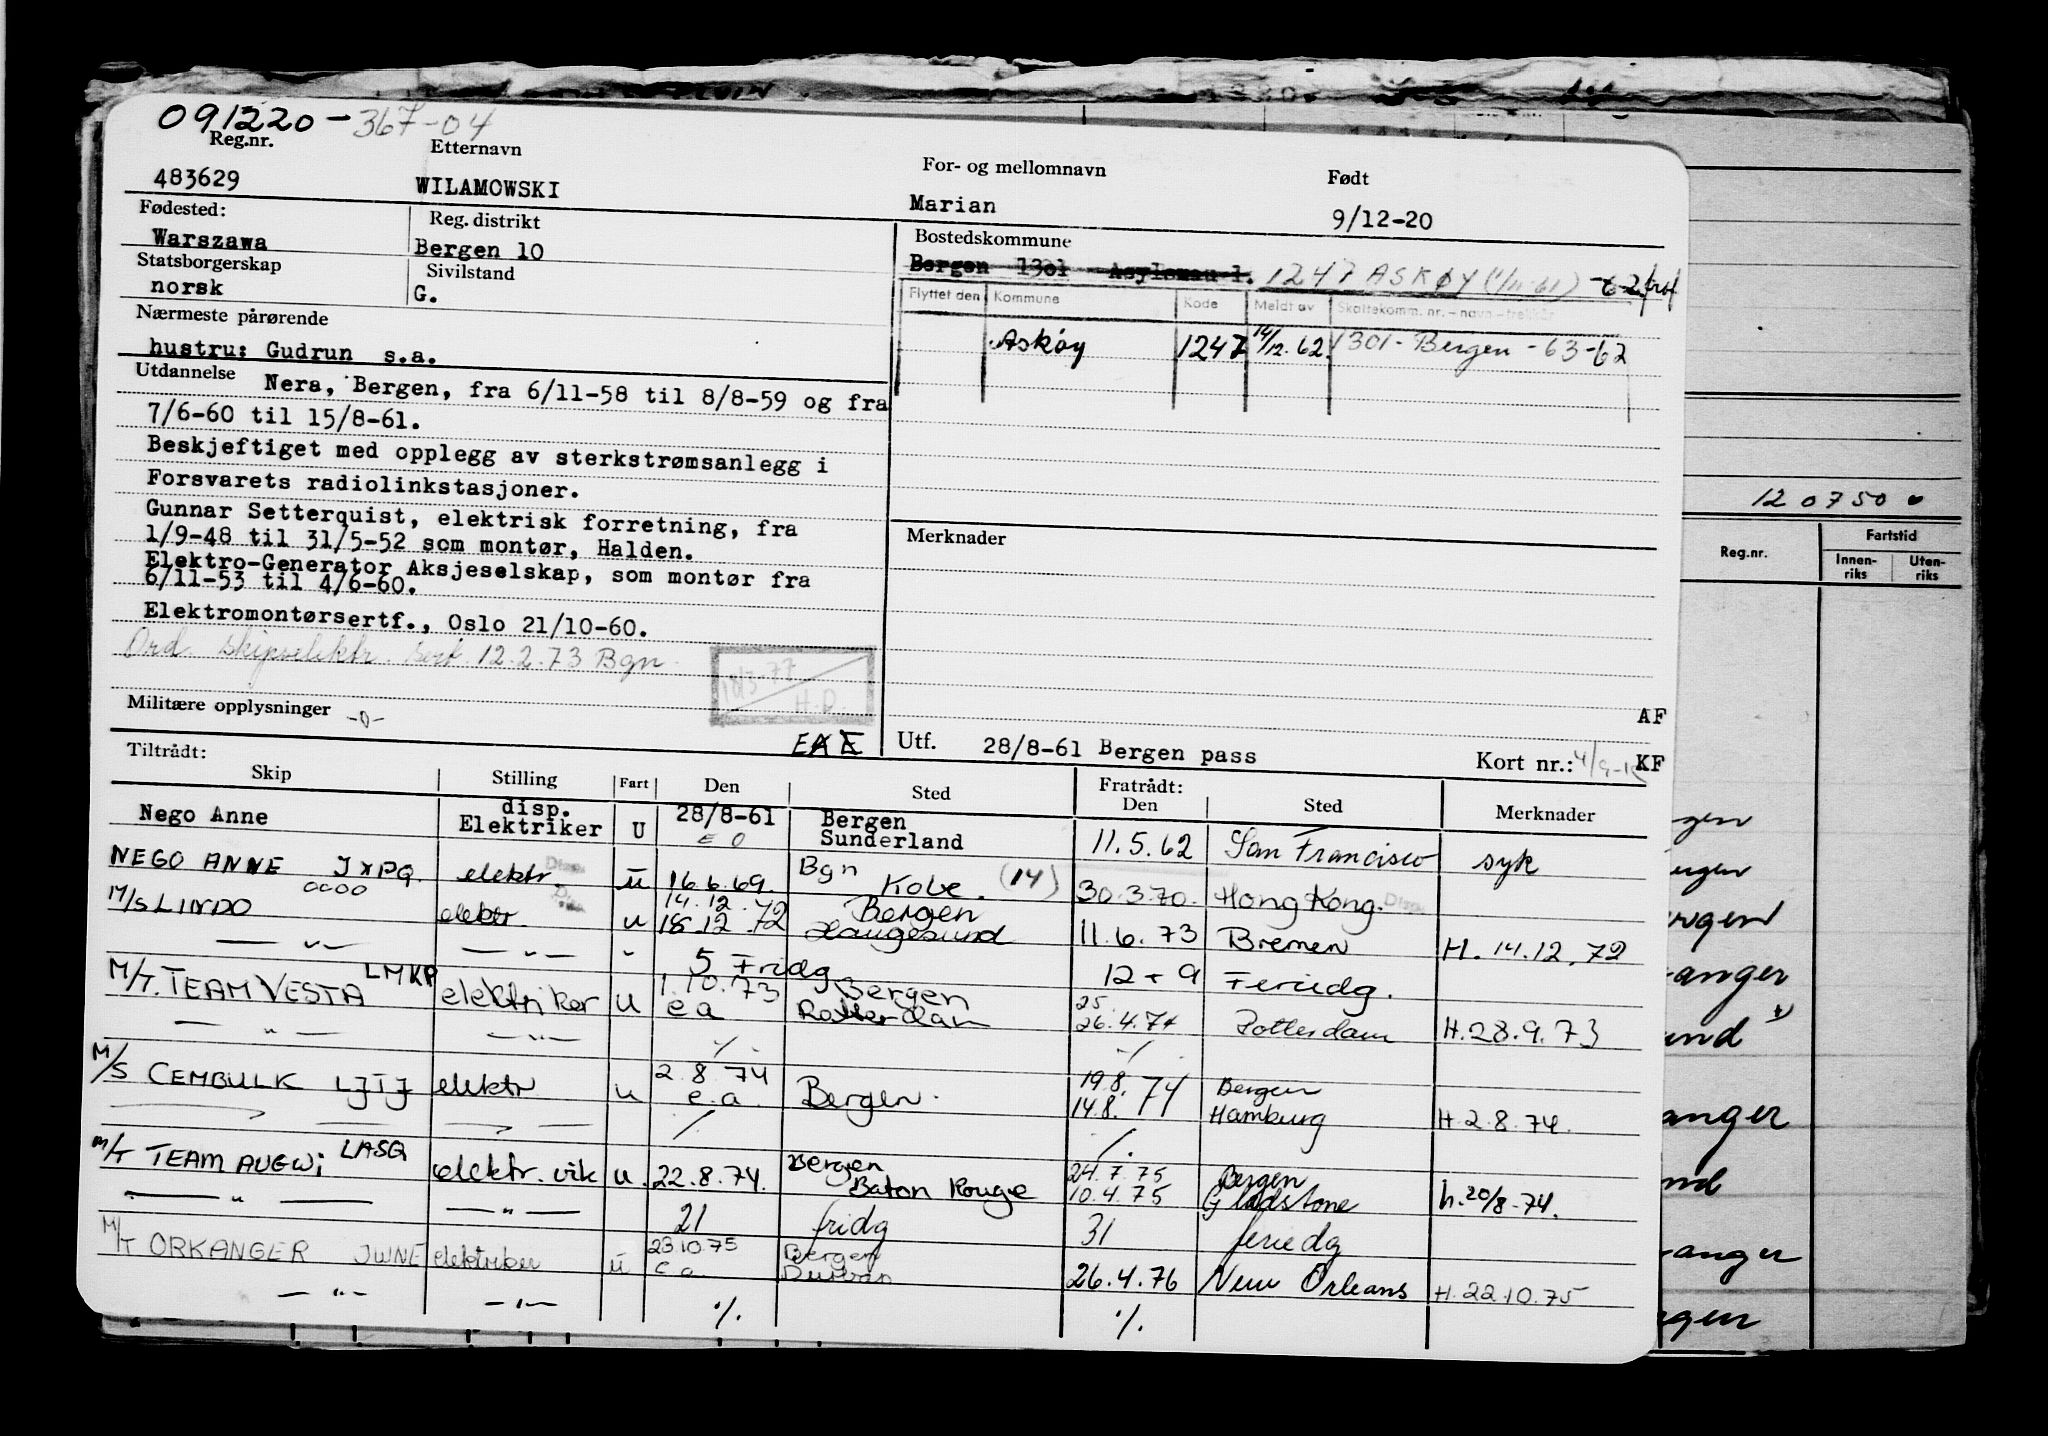 091220-367-04
Reg.nr. Etternavn For- og mellomnavn Født
483629 WILAMOWSKI Marian 9/12-20
Fødested: Reg. distrikt Bostedskommune
Warszawa Bergen 10 Bergen 1301 1247 ASKØY (1/11-61)
Statsborgerskap Sivilstand
norsk G.
Flyttet den Kommune Kode Meldt av Skattekomm. nr. - navn
Askøy 1247 14/12.62 1301 - Bergen - 63-62
Nærmeste pårørende
hustru: Gudrun s.a.
Utdannelse Nera, Bergen, fra 6/11-58 til 8/8-59 og fra
7/6-60 til 15/8-61.
Beskjeftiget med opplegg av sterkstrømsanlegg i
Forsvarets radiolinkstasjoner.
Gunnar Setterquist, elektrisk forretning, fra
1/9-48 til 31/5-52 som montør, Halden.
Elektro-Generator Aksjeselskap, som montør fra
6/11-53 til 4/6-60.
Elektromontørsertf., Oslo 21/10-60.
Ord. skipselektr. sert. 12.2.73 Bgn.
18/3-77
H.D.
Militære opplysninger -0-
Merknader
AF
Utf. 28/8-61 Bergen pass Kort nr.: KF
Tiltrådt: Fratrådt:
Skip Stilling Fart Den Sted Den Sted Merknader
Nego Anne disp. Elektriker U 28/8-61 Bergen Sunderland 11.5.62 San Francisco syk
E O
NEGO ANNE JXPQ elektr u 16.6.69. Bgn Kobe. (14) 30.3.70. Hong Kong.
M/S LINDO OOOO elektr. u 14.12. 18.12.72 Bergen Haugesund 11.6.73 Bremen H. 14.12.72
— " — — " — " 5 Fridg 12 + 9 Feriedg.
M/T. TEAM VESTA LMKP elektriker u 1.10.73 e a Bergen Rotterdam 25 26.4.74 Rotterdam H.28.9.73
— " — — " — ./. ./.
M/S CEMBULK LJIJ elektr u 2.8.74 e.a. Bergen. 19.8. 14.8. 74 Bergen Hamburg H.2.8.74.
M/T TEAM AUGWI LASQ elektr. vik u. 22.8.74. Bergen Baton Rouge 24.7.75 10.4.75 Bergen Gladstone h.20/8-74.
— " — — " — 21 fridg 31 feriedg
M/T ORKANGER JWNE elektriker u 23.10.75 e a Bergen Durban 26.4.76 New Orleans H.22.10.75
— " — — " — ./. ./.
120750
Reg.nr. Fartstid
Innen-riks Uten-riks